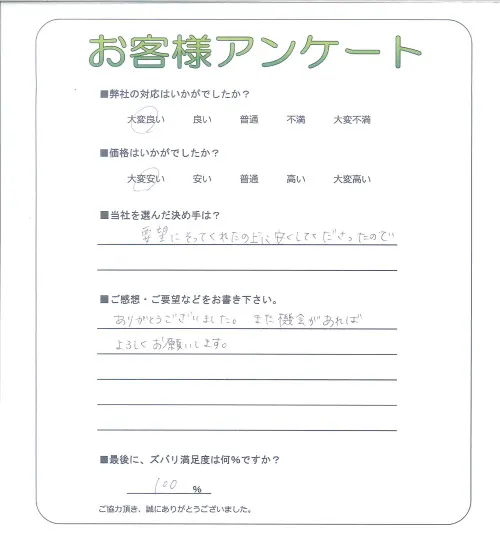 お客様アンケート
■弊社の対応はいかがでしたか？
大変良い 良い 普通 不満 大変不満
■価格はいかがでしたか？
大変安い 安い 普通 高い 大変高い
■当社を選んだ決め手は？
要望にそってくれたの上に安くしてくださったので
■ご感想・ご要望などをお書き下さい。
ありがとうございました。また機会があれば
よろしくお願いします。
■最後に、ズバリ満足度は何%ですか？
100 %
ご協力頂き、誠にありがとうございました。